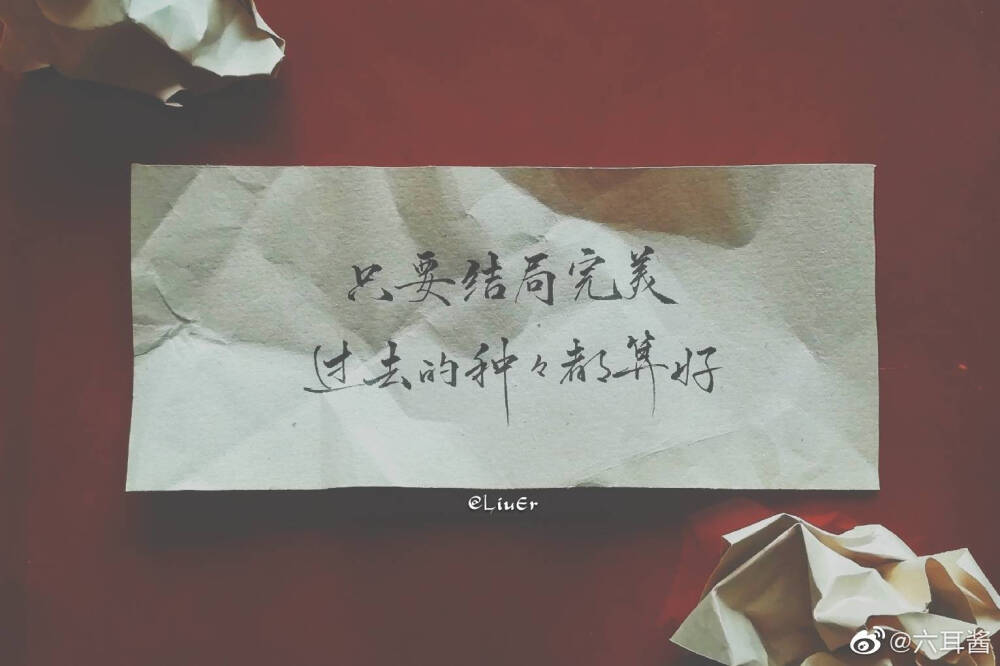 只要结局完美
过去的种々都算好
@LiuEr
@六耳酱